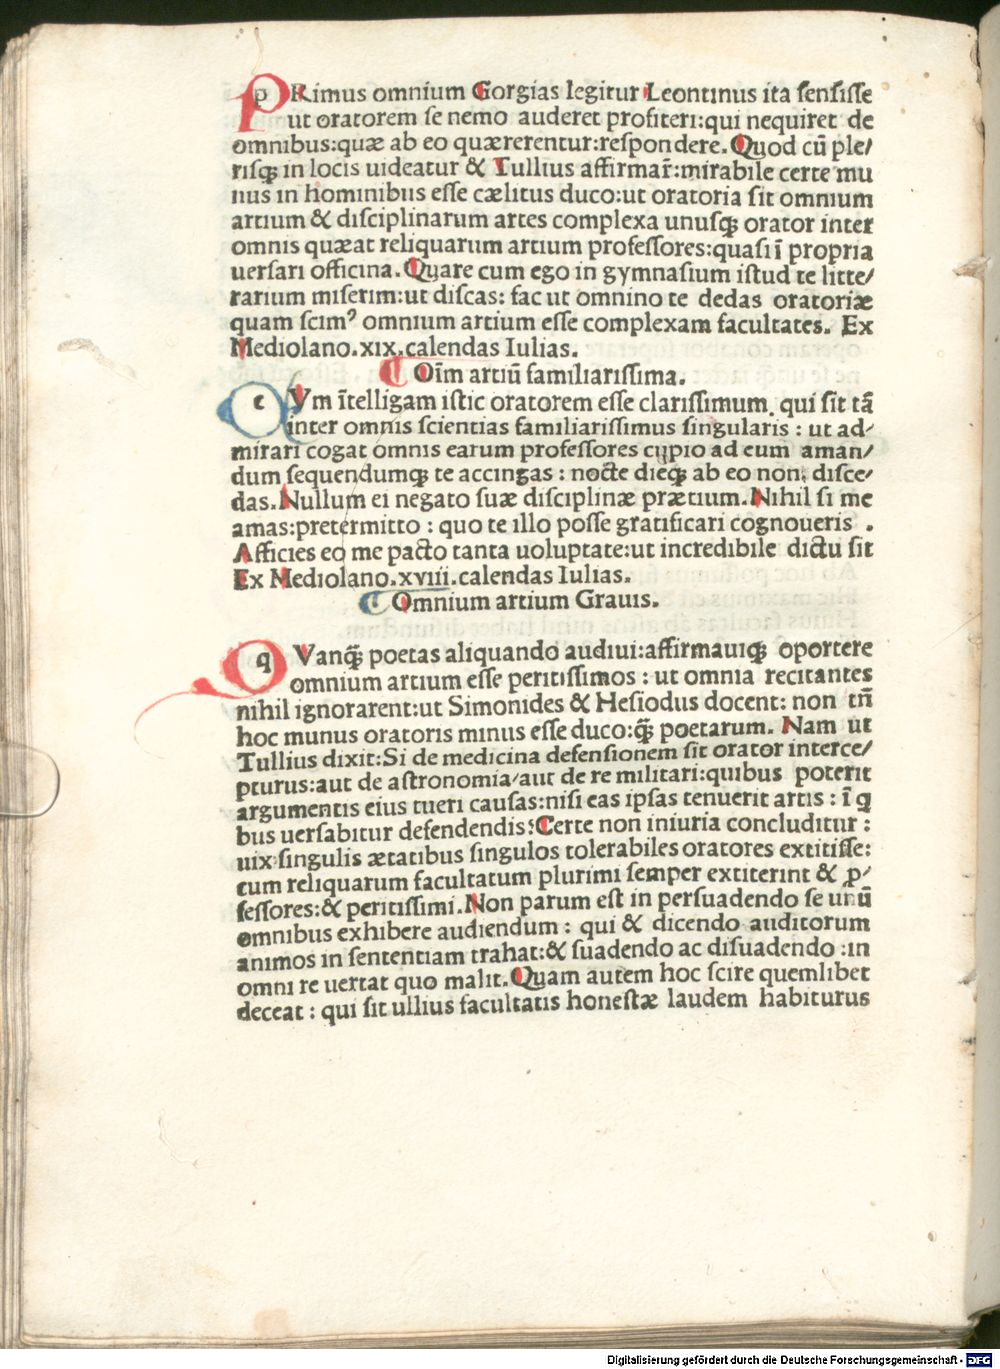 PRimus omnium Gorgias legitur Leontinus ita sensisse
ut oratorem se nemo auderet profiteri:qui nequiret de
omnibus:quæ ab eo quærerentur:respondere. Quod cū ple/
risq̨ in locis uideatur & Tullius affirmar̄:mirabile certe mu
nus in hominibus esse cælitus duco:ut oratoria sit omnium
artium & disciplinarum artes complexa unusq̨ orator inter
omnis quæat reliquarum artium professores:quasi ī propria
uersari officina. Quare cum ego in gymnasium istud te litte/
rarium miserim:ut discas: fac ut omnino te dedas oratoriæ
quam scimꝰ omnium artium esse complexam facultates. Ex
Mediolano.xix.calendas Iulias.
Oīm artiū familiarissima.
cVm ītelligam istic oratorem esse clarissimum, qui sit tā
inter omnis scientias familiarissimus singularis : ut ad/
mirari cogat omnis earum professores cupio ad eum aman/
dum sequendumq̨ te accingas : nocte dieq̨ ab eo non, disce/
das. Nullum ei negato suæ disciplinæ prætium. Nihil si me
amas:pretermitto : quo te illo posse gratificari cognoueris .
Afficies eo me pacto tanta uoluptate:ut incredibile dictu sit
Ex Mediolano.xviii.calendas Iulias.
Omnium artium Grauis.
qVanq̄ poetas aliquando audiui:affirmauiq̨ oportere
omnium artium esse peritissimos : ut omnia recitantes
nihil ignorarent:ut Simonides & Hesiodus docent: non tn̄
hoc munus oratoris minus esse duco:q̄ poetarum. Nam ut
Tullius dixit:Si de medicina defensionem sit orator interce/
pturus:aut de astronomia/aut de re militari:quibus poterit
argumentis eius tueri causas:nisi eas ipsas tenuerit artis : ī q
bus uersabitur defendendis:Certe non iniuria concluditur :
uix singulis ætatibus singulos tolerabiles oratores extitisse:
cum reliquarum facultatum plurimi semper extiterint & ꝓ/
fessores:& peritissimi. Non parum est in persuadendo se unū
omnibus exhibere audiendum : qui & dicendo auditorum
animos in sententiam trahat:& suadendo ac disuadendo :in
omni re uertat quo malit. Quam autem hoc scire quemlibet
deceat : qui sit ullius facultatis honestæ laudem habiturus
Digitalisierung gefördert durch die Deutsche Forschungsgemeinschaft - DFG